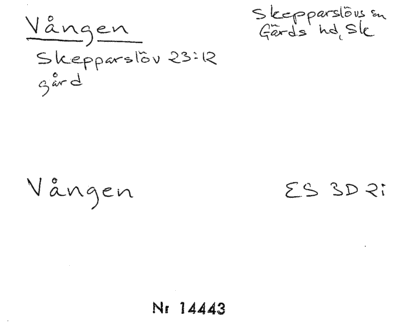 Vången
Skepparslövs sn
Gärds hd, Sk
Skepparslöv 23:12
gård
Vången
ES 3D 2i
Nr 14443